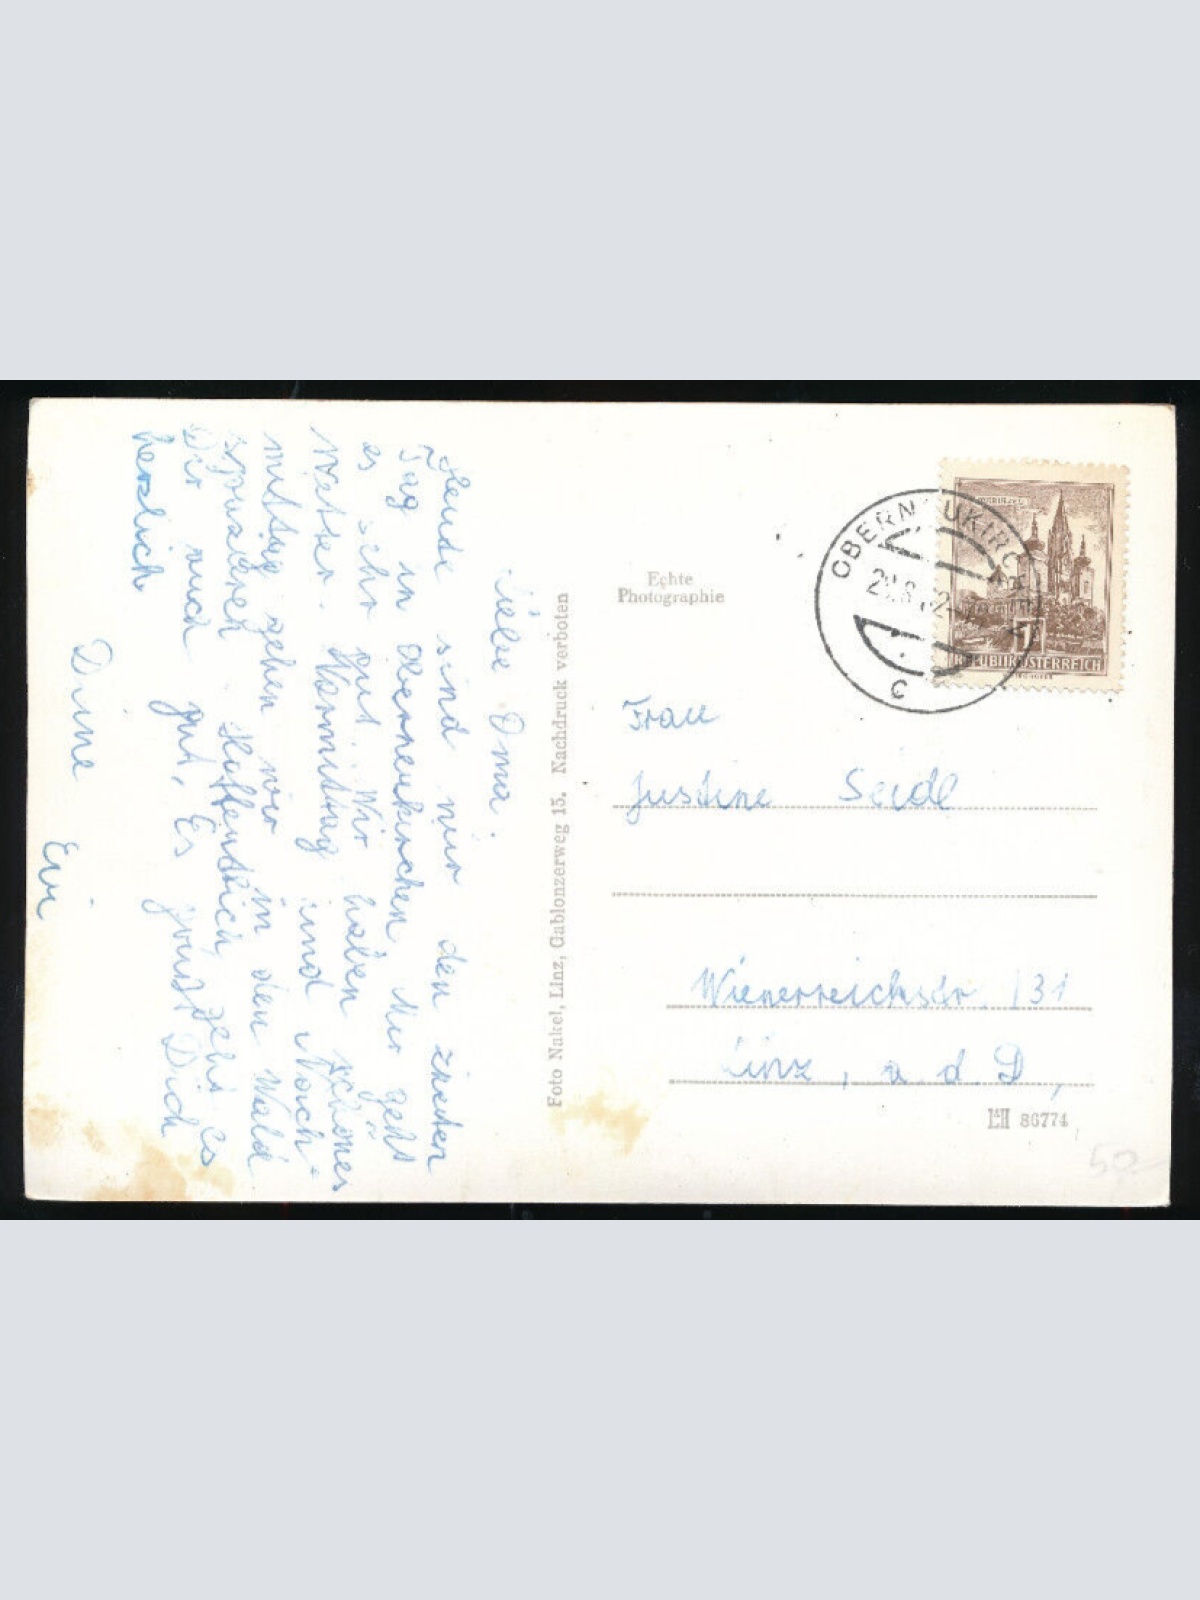 Liebe Oma!
Heute sind wir den zweiten
Tag in Oberneukirchen. Mir geht
es sehr gut. Wir haben schönes
Wetter. Vormittag und Nach-
mittag gehen wir in den Wald
spazieren. Hoffentlich geht es
Dir auch gut. Es grüst Dich
herzlich
Deine
Evi
Foto Nakel, Linz, Gablonzerweg 15. Nachdruck verboten
Echte
Photographie
OBERNEUKIRCHEN
C
MARIAZELL
1
REPUBLIK ÖSTERREICH
Frau
Justine Seidl
Wienerreichstr. 131
Linz, a. d. D,
86774
50